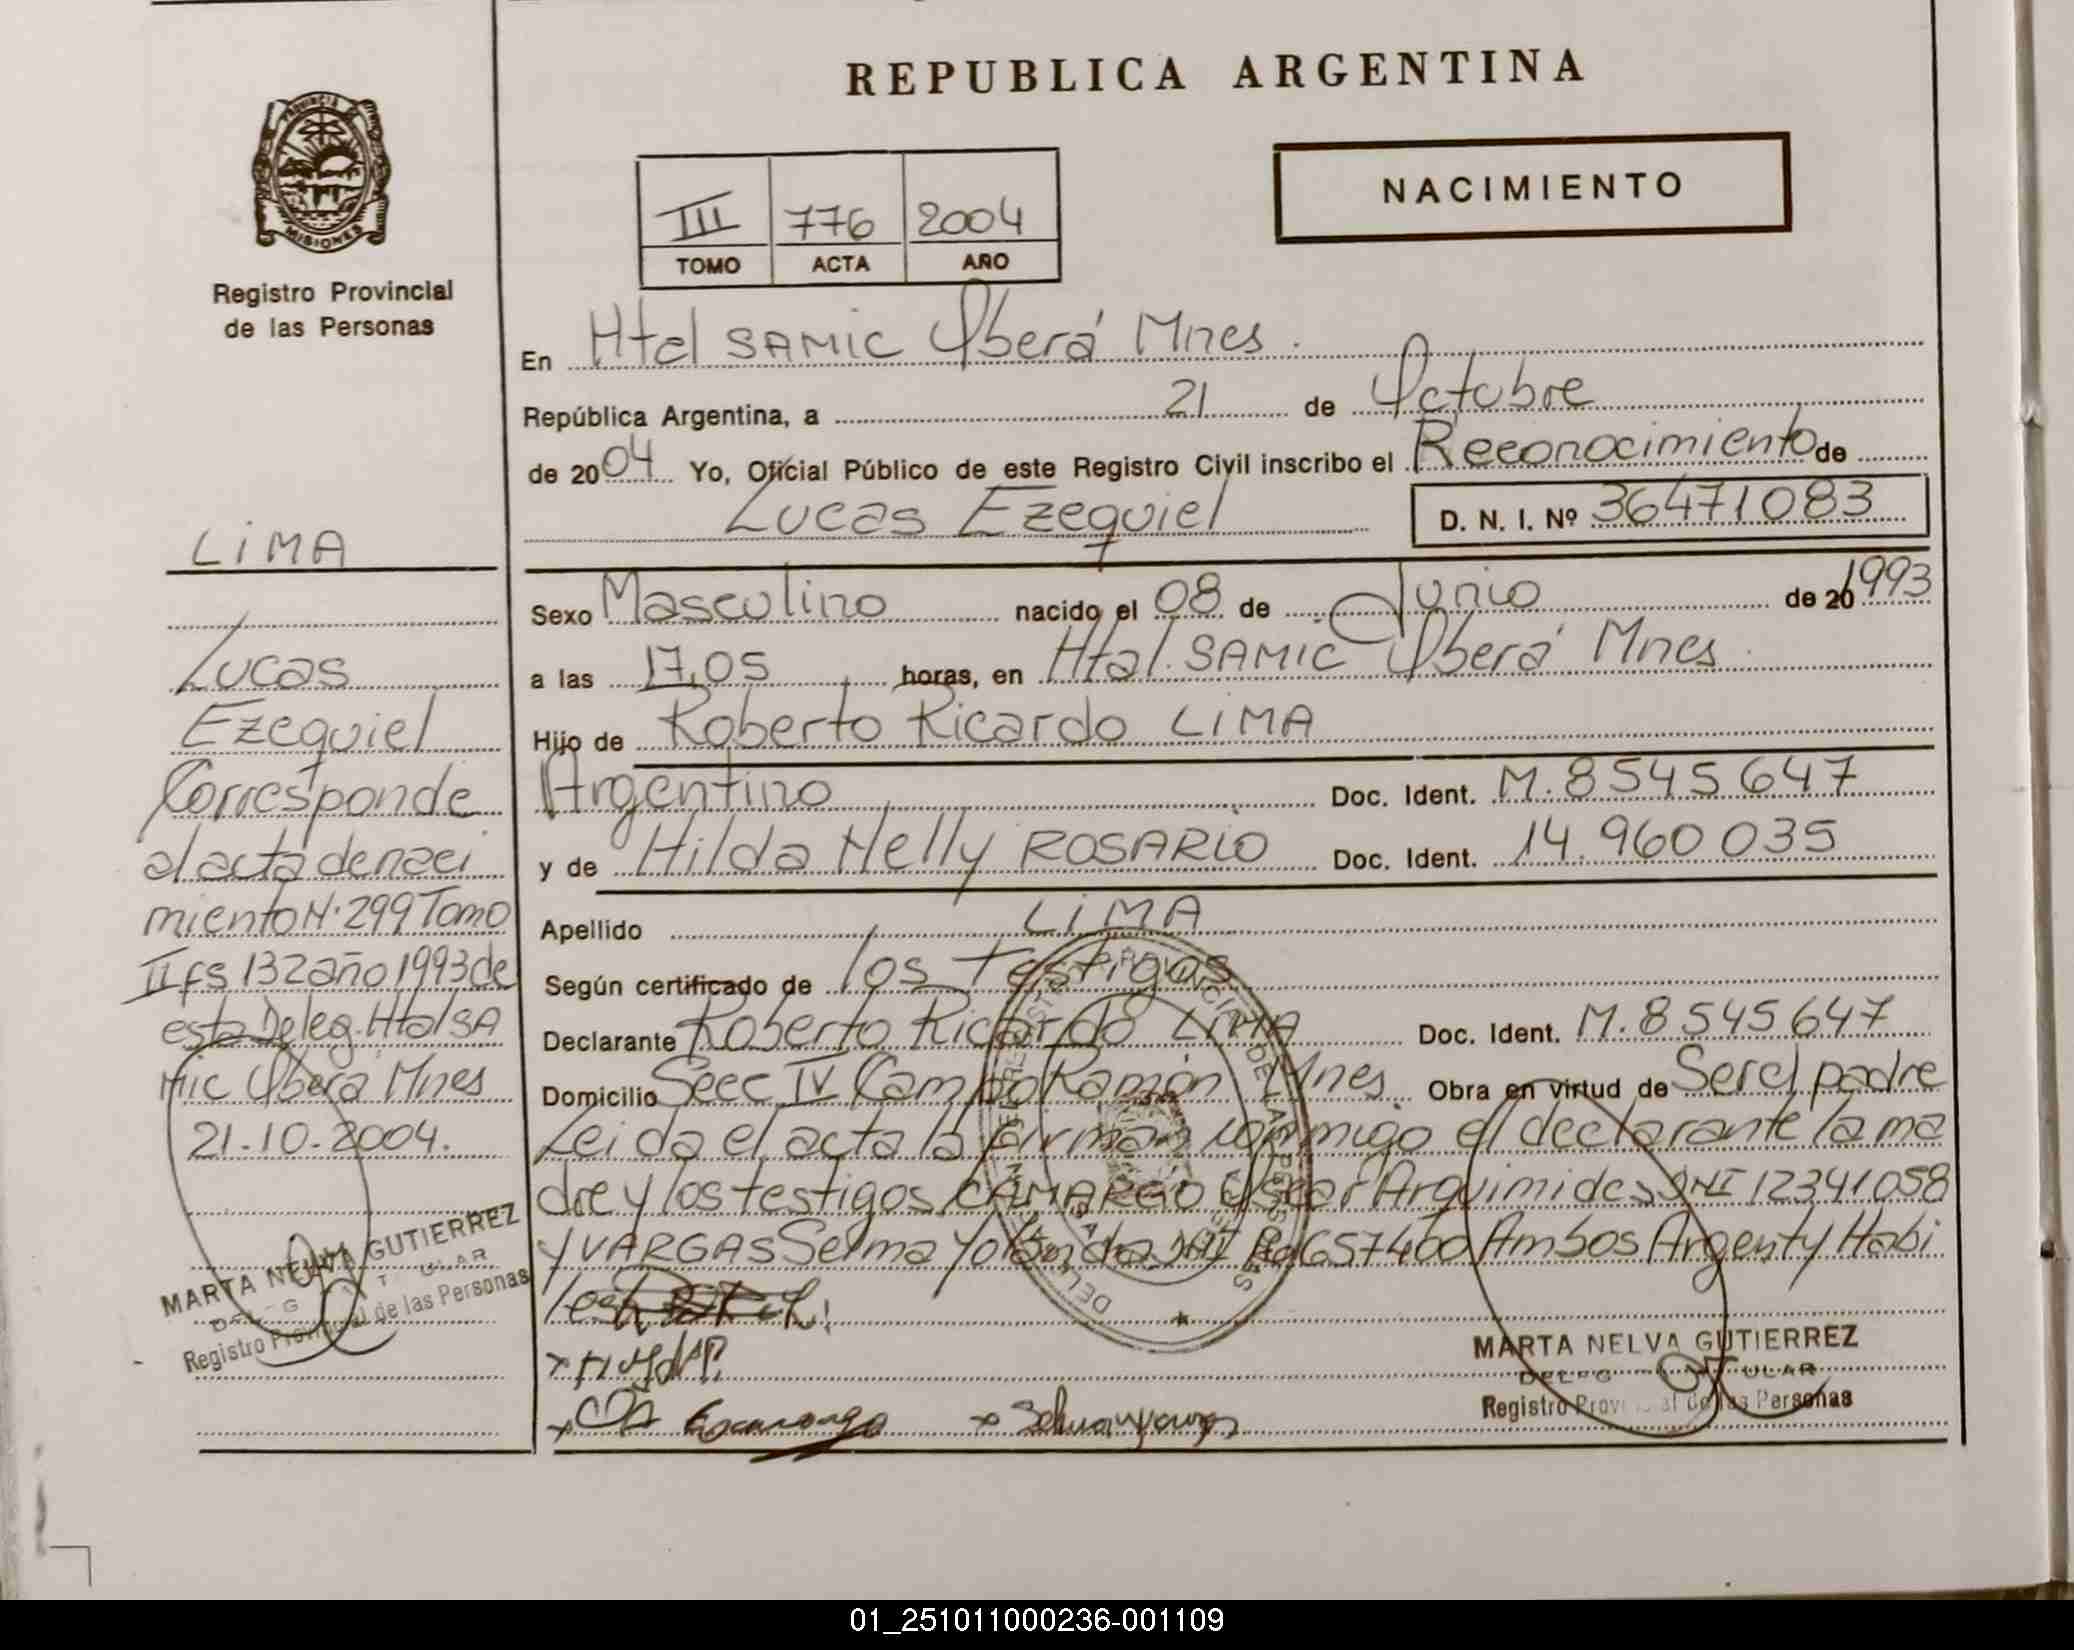 REPUBLICA ARGENTINA
PROVINCIA DE
MISIONES
Registro Provincial
de las Personas
III 776 2004
TOMO ACTA AÑO
NACIMIENTO
En Htal SAMIC Oberá Mnes.
República Argentina, a 21 de Octubre
de 2004 Yo, Oficial Público de este Registro Civil inscribo el Reconocimiento de
Lucas Ezequiel D. N. I. Nº 36471083
Sexo Masculino nacido el 08 de Junio de 20 1993
a las 17,05 horas, en Htal. SAMIC Oberá Mnes.
Hijo de Roberto Ricardo LIMA
Argentino Doc. Ident. M. 8545647
y de Hilda Nelly ROSARIO Doc. Ident. 14.960 035
Apellido LIMA
Según certificado de los Testigos
Declarante Roberto Ricardo LIMA Doc. Ident. M. 8545647
Domicilio Secc IV Campo Ramón Mnes Obra en virtud de Ser el padre
Leida el acta la firman conmigo el declarante la ma
dre y los testigos CAMARGO Oscar Arquimides DNI 12341058
y VARGAS Selma Yolanda DNI 657400 Ambos Argent y Habi
les
MARTA NELVA GUTIERREZ
Registro Provincial de las Personas
LIMA
Lucas
Ezequiel
Corresponde
al acta de naci
miento N. 299 Tomo
II fs 132 año 1993 de
esta Deleg. Htal SA
MIC Oberá Mnes
21.10.2004.
MARTA NELVA GUTIERREZ
Registro Provincial de las Personas
01_251011000236-001109